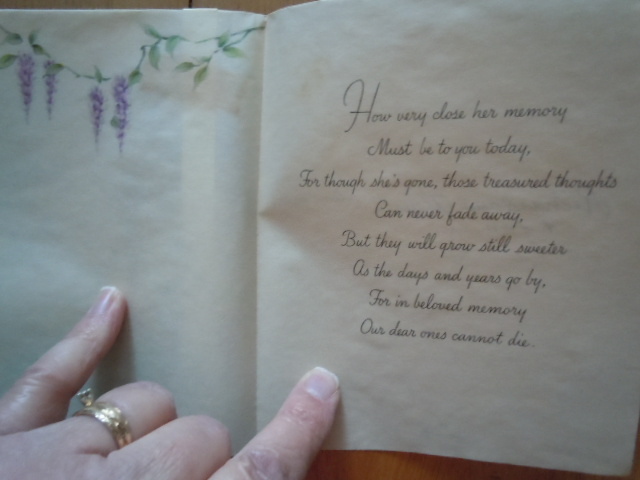 How very close her memory
Must be to you today,
For though she's gone, those treasured thoughts
Can never fade away,
But they will grow still sweeter
As the days and years go by,
For in beloved memory
Our dear ones cannot die.